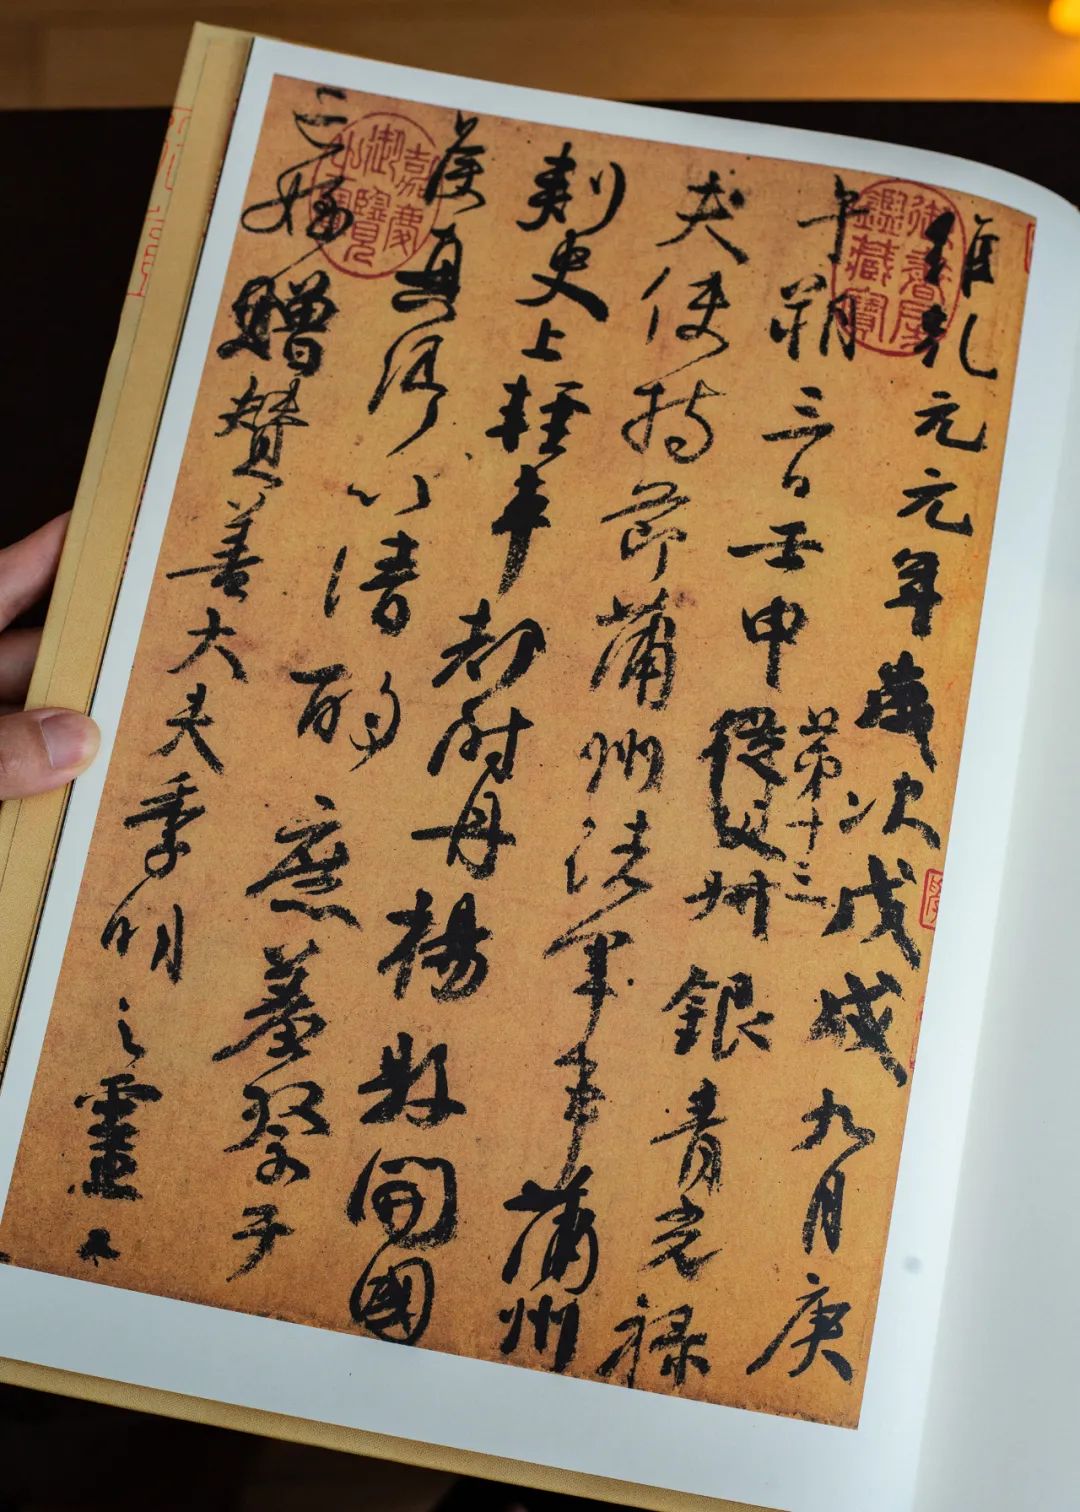 維乾元元年歲次戊戌九月庚
午朔三日壬申第十三從父叔銀青光禄
夫使持節蒲州諸軍事蒲州
刺史上輕車都尉丹楊縣開國
侯真卿以清酌庶羞祭于
亡姪贈贊善大夫季明之靈曰
御書房鑑藏寶
嘉慶御覽之寶